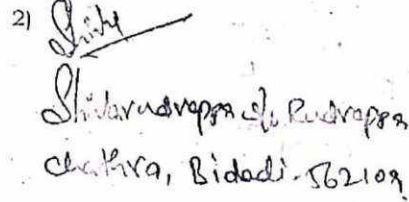 2)
Shivarudrappa S/o Rudrappa
Bidadi. 562109